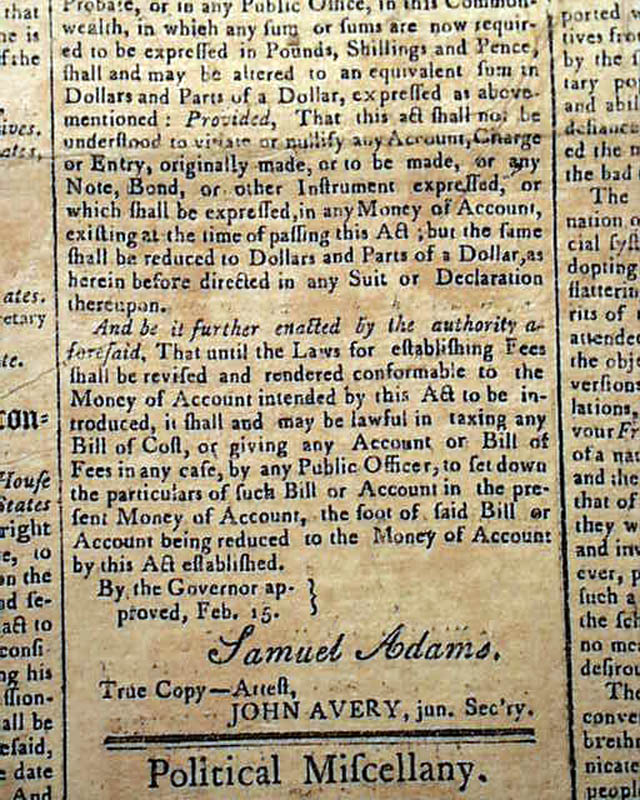 that
he is
f the
ives.
ates,
ates.
retary
te.
con=
Houſe
States
right
e, to
on the
nd ſe-
act to
conſi-
ng his
iſſion-
all be
eſaid,
e date
And
Probate, or in any Public Office, in this Common-
wealth, in which any ſum or ſums are now requir-
ed to be expreſſed in Pounds, Shillings and Pence,
ſhall and may be altered to an equivalent ſum in
Dollars and Parts of a Dollar, expreſſed as above-
mentioned : Provided, That this act ſhall not be
underſtood to vitiate or nullify any Account, Charge
or Entry, originally made, or to be made, or any
Note, Bond, or other Inſtrument expreſſed, or
which ſhall be expreſſed, in any Money of Account,
exiſting at the time of paſſing this Act ; but the ſame
ſhall be reduced to Dollars and Parts of a Dollar, as
herein before directed in any Suit or Declaration
thereupon.
And be it further enacted by the authority a-
foreſaid, That until the Laws for eſtabliſhing Fees
ſhall be reviſed and rendered conformable to the
Money of Account intended by this Act to be in-
troduced, it ſhall and may be lawful in taxing any
Bill of Coſt, or giving any Account or Bill of
Fees in any caſe, by any Public Officer, to ſet down
the particulars of ſuch Bill or Account in the pre-
ſent Money of Account, the foot of ſaid Bill or
Account being reduced to the Money of Account
by this Act eſtabliſhed.
By the Governor ap- }
proved, Feb. 15.
Samuel Adams.
True Copy—Atteſt,
JOHN AVERY, jun. Sec'ry.
Political Miſcellany.
ported
tives fro
by the
tary pop
and abil
defiance
ed the m
the bad
The
nation o
cial ſyſt
dopting
flatterin
rits of
attended
the obje
verſions
lations,
your Fr
of a nat
and the
that of
they w
and inv
ever, p
ſuch a
the ſch
no mea
deſirou
The
conve
brethr
nicate
people